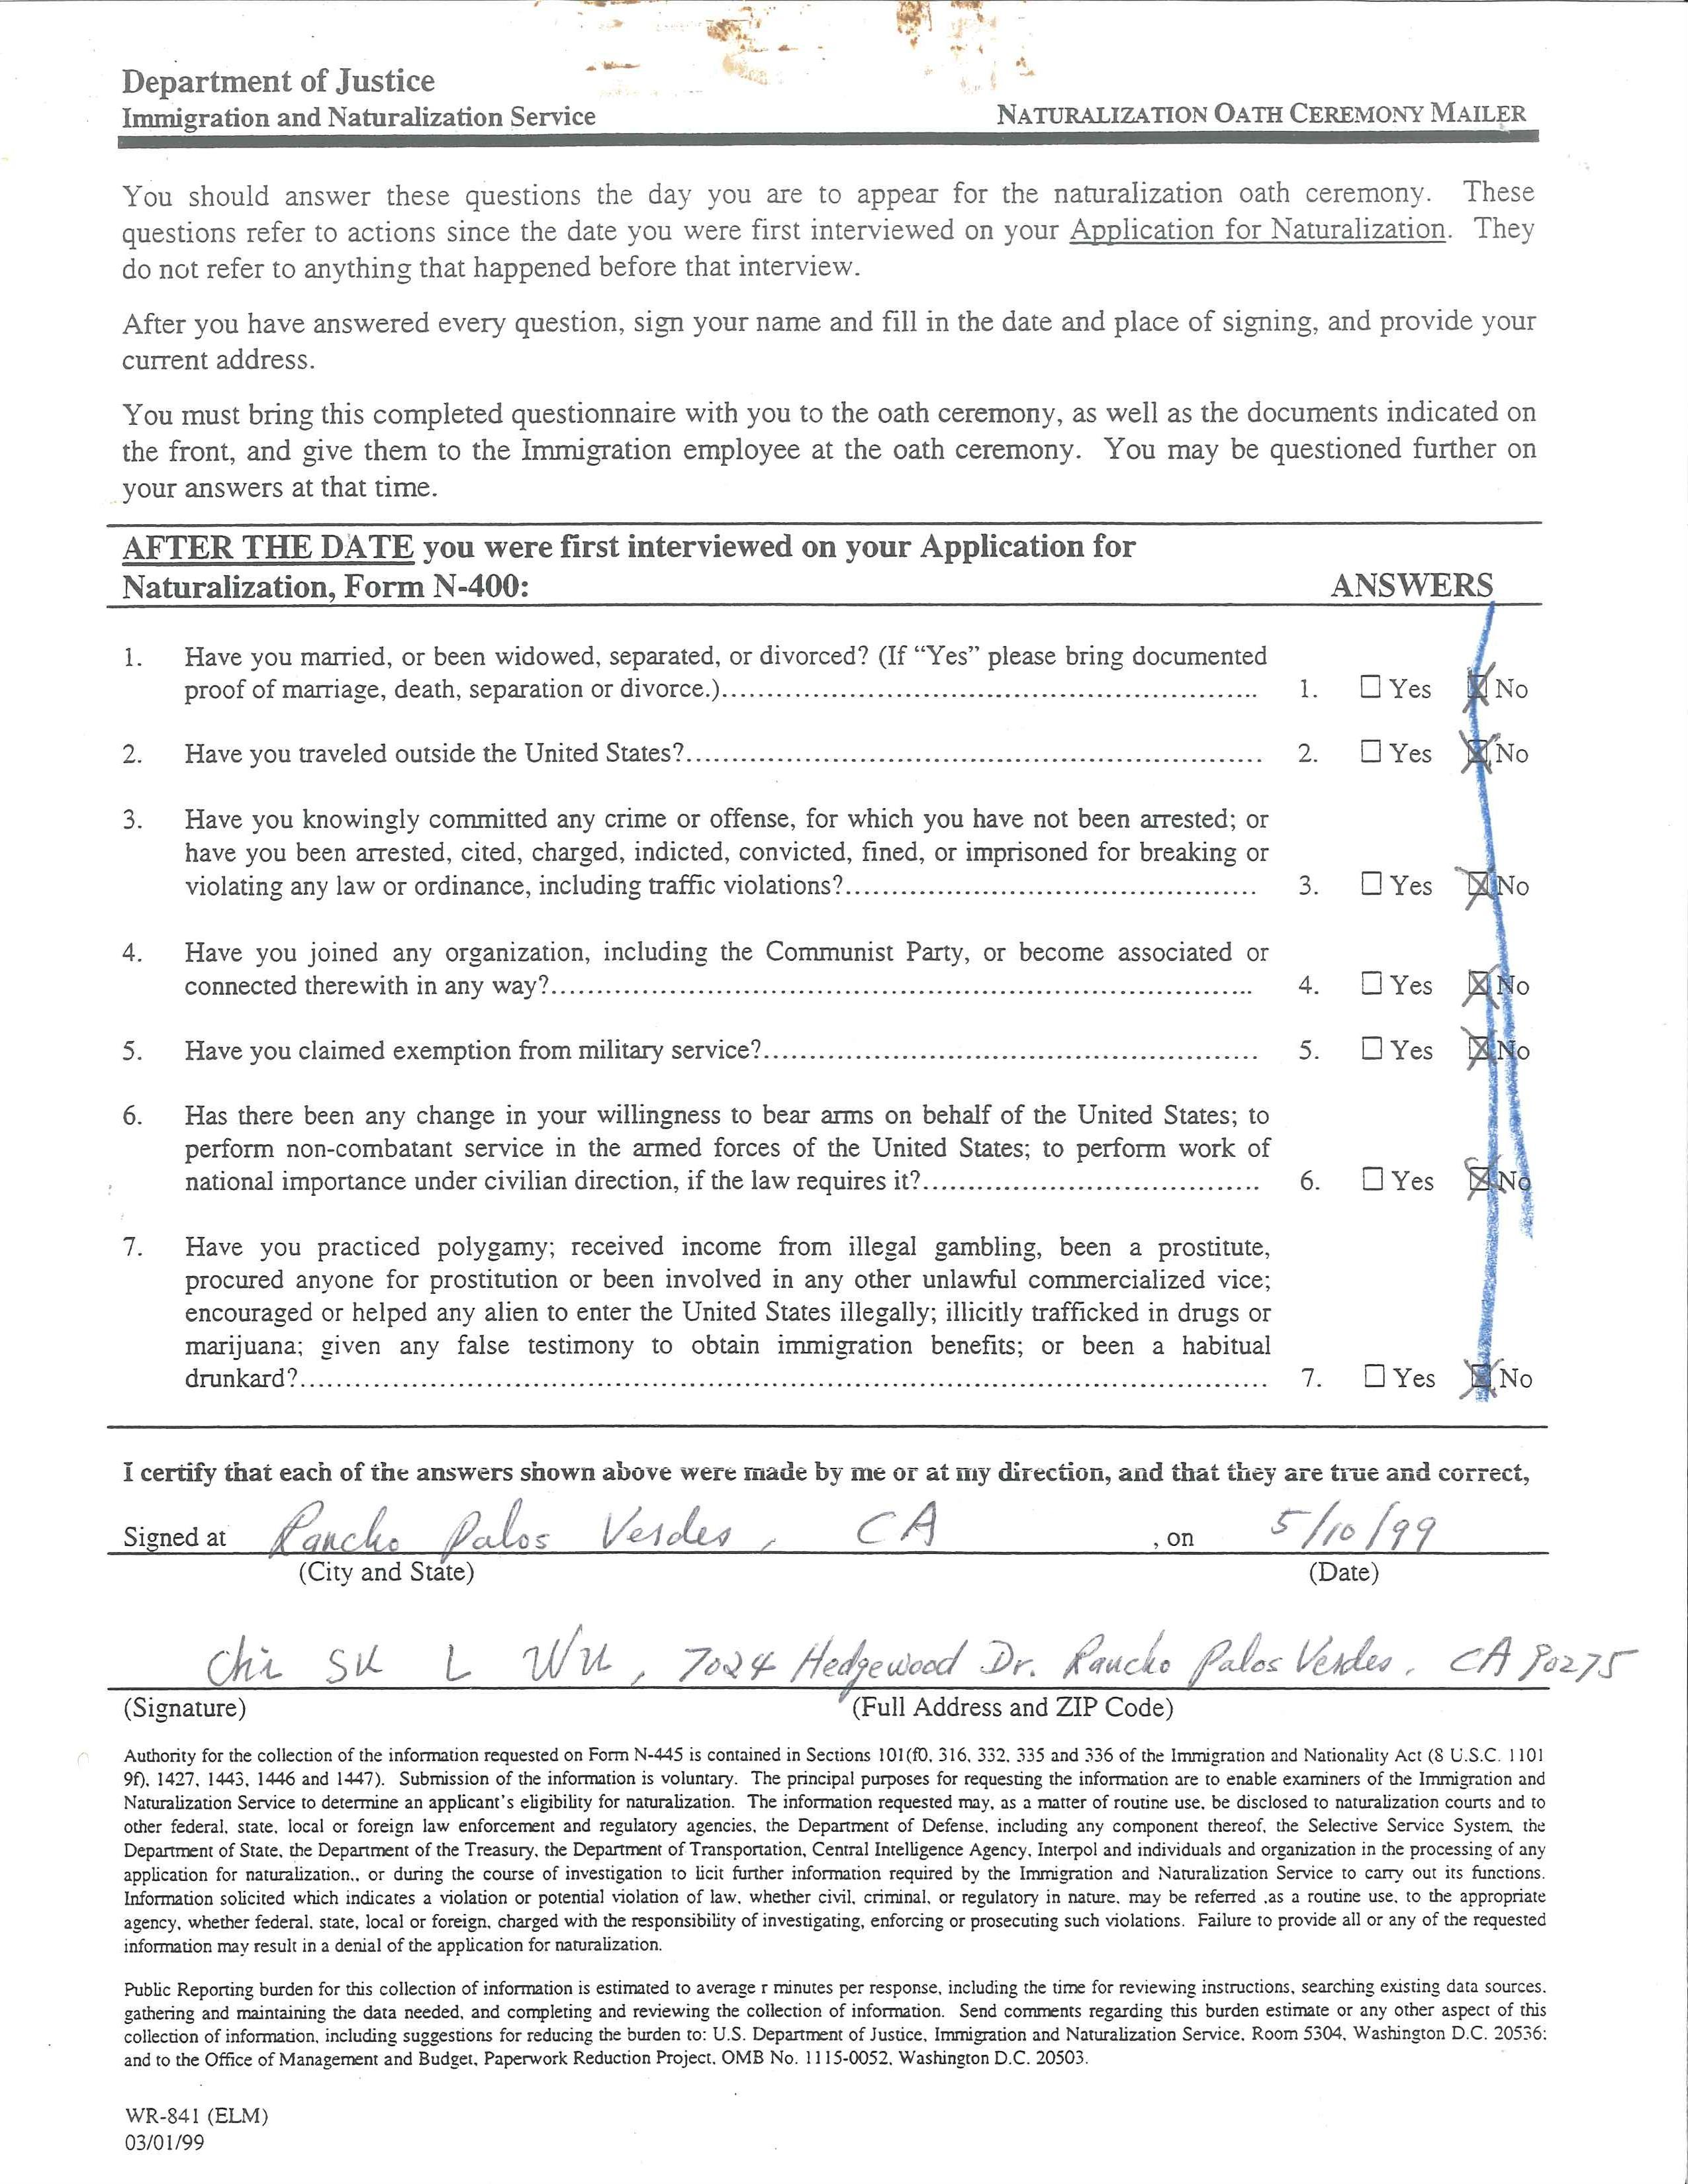 Department of Justice
Immigration and Naturalization Service
NATURALIZATION OATH CEREMONY MAILER
You should answer these questions the day you are to appear for the naturalization oath ceremony. These
questions refer to actions since the date you were first interviewed on your Application for Naturalization. They
do not refer to anything that happened before that interview.
After you have answered every question, sign your name and fill in the date and place of signing, and provide your
current address.
You must bring this completed questionnaire with you to the oath ceremony, as well as the documents indicated on
the front, and give them to the Immigration employee at the oath ceremony. You may be questioned further on
your answers at that time.
AFTER THE DATE you were first interviewed on your Application for
Naturalization, Form N-400: ANSWERS
1. Have you married, or been widowed, separated, or divorced? (If “Yes” please bring documented
proof of marriage, death, separation or divorce.)........ 1. ☐ Yes ☒ No
2. Have you traveled outside the United States?........ 2. ☐ Yes ☒ No
3. Have you knowingly committed any crime or offense, for which you have not been arrested; or
have you been arrested, cited, charged, indicted, convicted, fined, or imprisoned for breaking or
violating any law or ordinance, including traffic violations?........ 3. ☐ Yes ☒ No
4. Have you joined any organization, including the Communist Party, or become associated or
connected therewith in any way?........ 4. ☐ Yes ☒ No
5. Have you claimed exemption from military service?........ 5. ☐ Yes ☒ No
6. Has there been any change in your willingness to bear arms on behalf of the United States; to
perform non-combatant service in the armed forces of the United States; to perform work of
national importance under civilian direction, if the law requires it?........ 6. ☐ Yes ☒ No
7. Have you practiced polygamy; received income from illegal gambling, been a prostitute,
procured anyone for prostitution or been involved in any other unlawful commercialized vice;
encouraged or helped any alien to enter the United States illegally; illicitly trafficked in drugs or
marijuana; given any false testimony to obtain immigration benefits; or been a habitual
drunkard?........ 7. ☐ Yes ☒ No
I certify that each of the answers shown above were made by me or at my direction, and that they are true and correct,
Signed at Rancho Palos Verdes, CA , on 5/10/99
(City and State) (Date)
Chi SK L WU, 7024 Hedgewood Dr. Rancho Palos Verdes, CA 90275
(Signature) (Full Address and ZIP Code)
Authority for the collection of the information requested on Form N-445 is contained in Sections 101(f0, 316, 332, 335 and 336 of the Immigration and Nationality Act (8 U.S.C. 1101
9f), 1427, 1443, 1446 and 1447). Submission of the information is voluntary. The principal purposes for requesting the information are to enable examiners of the Immigration and
Naturalization Service to determine an applicant's eligibility for naturalization. The information requested may, as a matter of routine use, be disclosed to naturalization courts and to
other federal, state, local or foreign law enforcement and regulatory agencies, the Department of Defense, including any component thereof, the Selective Service System, the
Department of State, the Department of the Treasury, the Department of Transportation, Central Intelligence Agency, Interpol and individuals and organization in the processing of any
application for naturalization,, or during the course of investigation to licit further information required by the Immigration and Naturalization Service to carry out its functions.
Information solicited which indicates a violation or potential violation of law, whether civil, criminal, or regulatory in nature, may be referred ,as a routine use, to the appropriate
agency, whether federal, state, local or foreign, charged with the responsibility of investigating, enforcing or prosecuting such violations. Failure to provide all or any of the requested
information may result in a denial of the application for naturalization.
Public Reporting burden for this collection of information is estimated to average r minutes per response, including the time for reviewing instructions, searching existing data sources,
gathering and maintaining the data needed, and completing and reviewing the collection of information. Send comments regarding this burden estimate or any other aspect of this
collection of information, including suggestions for reducing the burden to: U.S. Department of Justice, Immigration and Naturalization Service, Room 5304, Washington D.C. 20536;
and to the Office of Management and Budget, Paperwork Reduction Project, OMB No. 1115-0052, Washington D.C. 20503.
WR-841 (ELM)
03/01/99